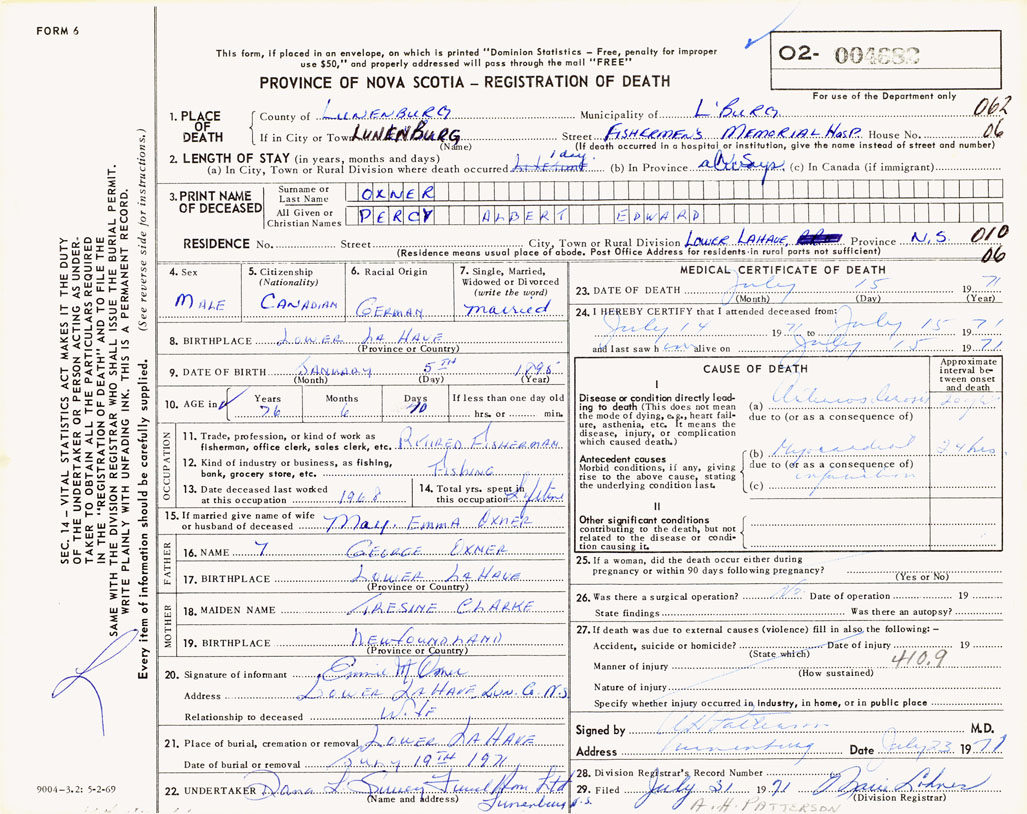 FORM 6
This form, if placed in an envelope, on which is printed "Dominion Statistics – Free, penalty for improper
use $50," and properly addressed will pass through the mail "FREE"
PROVINCE OF NOVA SCOTIA – REGISTRATION OF DEATH
O2-
For use of the Department only
1. PLACE OF DEATH
County of LUNENBURG Municipality of L'BURG 062
If in City or Town LUNENBURG Street FISHERMEN'S MEMORIAL HOSP. House No. 06
(Name) (If death occurred in a hospital or institution, give the name instead of street and number)
2. LENGTH OF STAY (in years, months and days)
(a) In City, Town or Rural Division where death occurred 1 day (b) In Province always (c) In Canada (if immigrant)
3. PRINT NAME OF DECEASED
Surname or Last Name OXNER
All Given or Christian Names PERCY ALBERT EDWARD
RESIDENCE No. Street City, Town or Rural Division LOWER LAHAVE, Province N.S. 010
(Residence means usual place of abode. Post Office Address for residents in rural parts not sufficient) 06
4. Sex
MALE
5. Citizenship (Nationality)
CANADIAN
6. Racial Origin
GERMAN
7. Single, Married, Widowed or Divorced (write the word)
married
8. BIRTHPLACE LOWER LA HAVE
(Province or Country)
9. DATE OF BIRTH JANUARY 5TH 1895
(Month) (Day) (Year)
10. AGE in Years Months Days If less than one day old
76 6 10 hrs. or min.
OCCUPATION
11. Trade, profession, or kind of work as
fisherman, office clerk, sales clerk, etc. RETIRED FISHERMAN
12. Kind of industry or business, as fishing,
bank, grocery store, etc. FISHING
13. Date deceased last worked
at this occupation 1968
14. Total yrs. spent in
this occupation Lifetime
15. If married give name of wife
or husband of deceased MAY. EMMA OXNER
FATHER
16. NAME GEORGE OXNER
17. BIRTHPLACE LOWER LA HAVE
(Province or Country)
MOTHER
18. MAIDEN NAME TRESINE CLARKE
19. BIRTHPLACE NEWFOUNDLAND
(Province or Country)
20. Signature of informant
Address LOWER LA HAVE, LUN. Co. N.S.
Relationship to deceased WIFE
21. Place of burial, cremation or removal LOWER LA HAVE
Date of burial or removal JULY 19TH 1971
22. UNDERTAKER Dana L Funeral Home Ltd
(Name and address) Lunenburg N.S.
MEDICAL CERTIFICATE OF DEATH
23. DATE OF DEATH July 15 1971
(Month) (Day) (Year)
24. I HEREBY CERTIFY that I attended deceased from:
July 14 1971 to July 15 1971
and last saw him alive on July 15 1971
CAUSE OF DEATH
Approximate interval between onset and death
I
Disease or condition directly leading to death (This does not mean the mode of dying, e.g., heart failure, asthenia, etc. It means the disease, injury, or complication which caused death.)
(a) Arteriosclerosis
due to (or as a consequence of)
Antecedent causes
Morbid conditions, if any, giving rise to the above cause, stating the underlying condition last.
(b) Myocardial 24 hrs
due to (or as a consequence of)
(c) infarction
II
Other significant conditions
contributing to the death, but not related to the disease or condition causing it.
25. If a woman, did the death occur either during
pregnancy or within 90 days following pregnancy?
(Yes or No)
26. Was there a surgical operation? No Date of operation 19
State findings Was there an autopsy?
27. If death was due to external causes (violence) fill in also the following: –
Accident, suicide or homicide? Date of injury 19
(State which)
Manner of injury 410.9
(How sustained)
Nature of injury
Specify whether injury occurred in industry, in home, or in public place
Signed by A H Patterson M.D.
Address Lunenburg Date July 23 1971
28. Division Registrar's Record Number
29. Filed July 31 1971
(Division Registrar)
A. H. PATTERSON
SEC. 14 – VITAL STATISTICS ACT MAKES IT THE DUTY
OF THE UNDERTAKER OR PERSON ACTING AS UNDERTAKER TO OBTAIN ALL THE PARTICULARS REQUIRED
IN THE "REGISTRATION OF DEATH" AND TO FILE THE
SAME WITH THE DIVISION REGISTRAR WHO SHALL ISSUE THE BURIAL PERMIT.
WRITE PLAINLY WITH UNFADING INK. THIS IS A PERMANENT RECORD.
Every item of information should be carefully supplied. (See reverse side for instructions.)
9004-3.2: 5-2-69